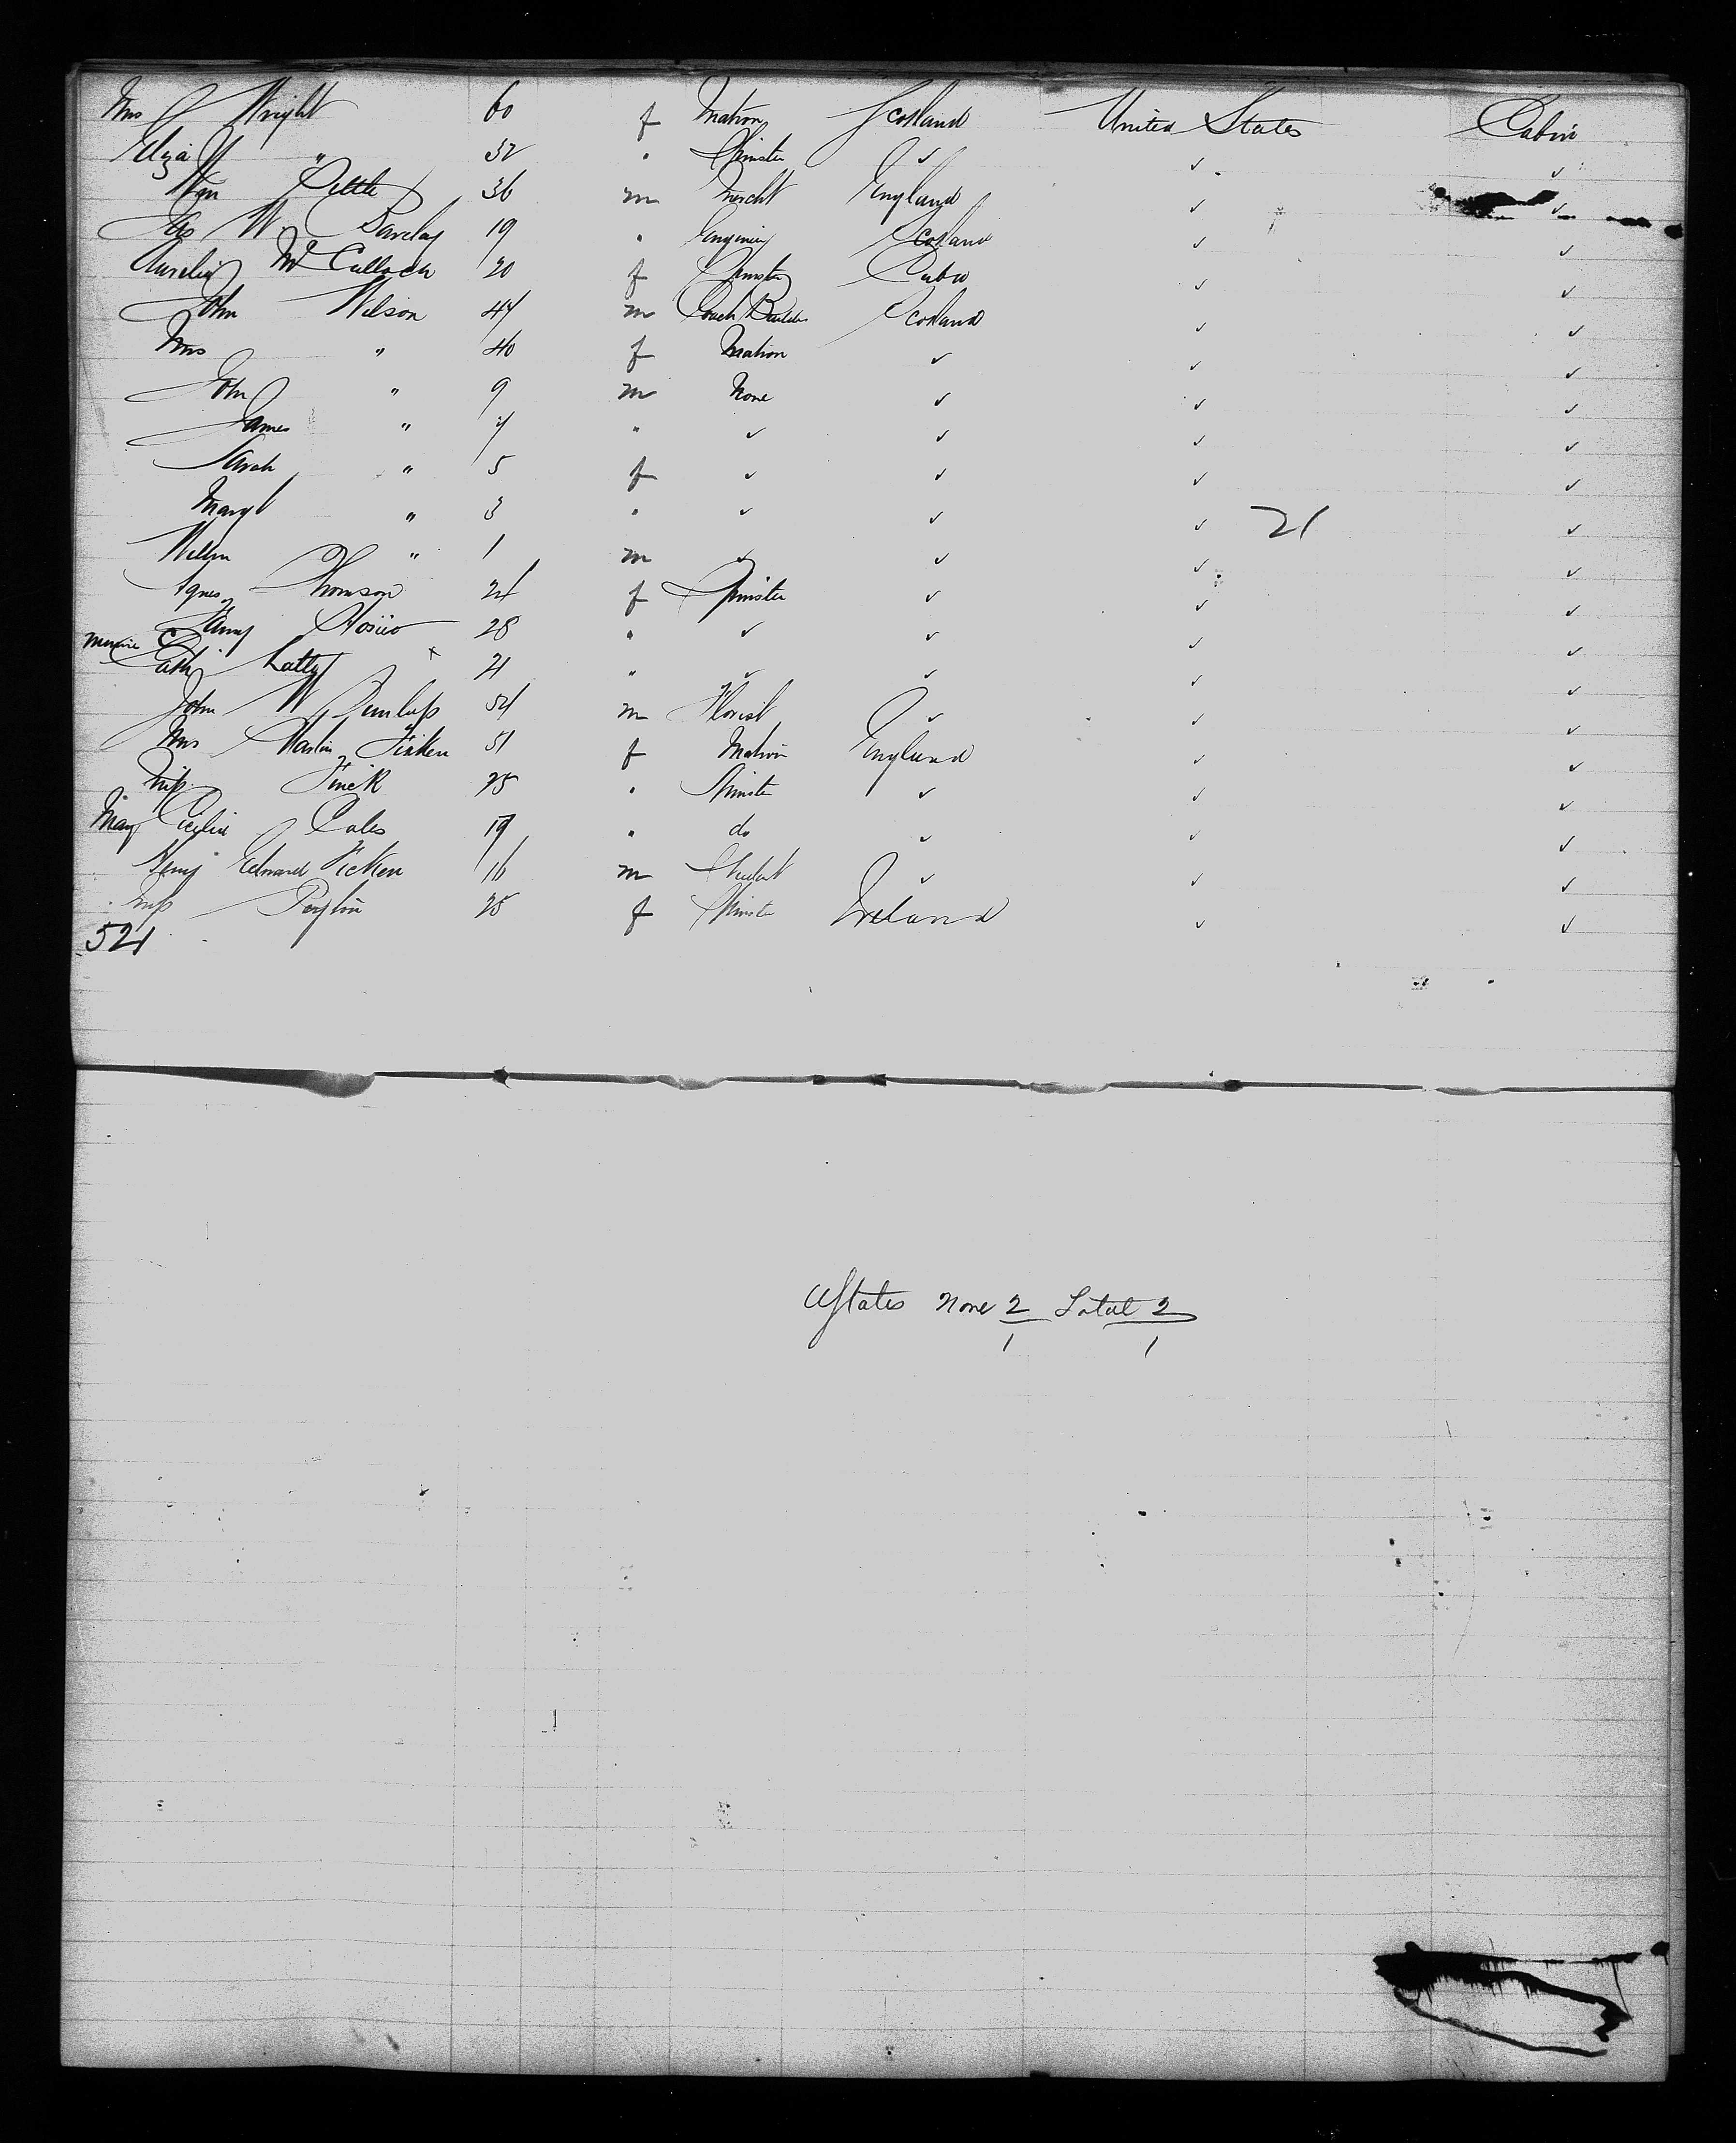 Mrs Wright 60 f Matron Scotland United States Cabin
Eliza " 32 " Spinster ✓ ✓ ✓
Wm Pettle 36 m Mercht England ✓ ✓
Jas W Barclay 19 " Engineer Scotland ✓ ✓
Aurelia McCulloch 20 f Spinster Cuba ✓ ✓
John Wilson 44 m Coach Builder Scotland ✓ ✓
Mrs " 40 f Matron ✓ ✓ ✓
John " 9 m None ✓ ✓ ✓
James " 7 " ✓ ✓ ✓ ✓
Sarah " 5 f ✓ ✓ ✓ ✓
Mary " 3 " ✓ ✓ ✓ 21 ✓
Wilson " 1 m ✓ ✓ ✓ ✓
Agnes Thomson 24 f Spinster ✓ ✓ ✓
Fanny 28 " ✓ ✓ ✓ ✓
Cath Latty x 21 " ✓ ✓ ✓ ✓
John W Dunlop 54 m Florist ✓ ✓ ✓
Mrs Martin Ficken 51 f Matron England ✓ ✓
Miss Finck 25 " Spinster ✓ ✓ ✓
May Cecilia Coles 19 " do ✓ ✓ ✓
Henry Edward Ficken 16 m Student ✓ ✓ ✓
Miss Peyton 25 f Spinster Ireland ✓ ✓
521
UStates None 2 Total 2
1 1